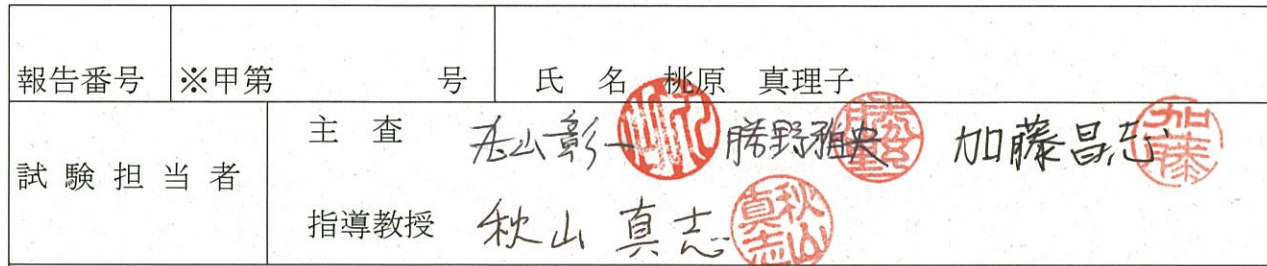 報告番号 ※甲第 号 氏 名 桃原 真理子
試験担当者
主 査 彰一 勝野雅央 加藤昌志
指導教授 秋山 真志